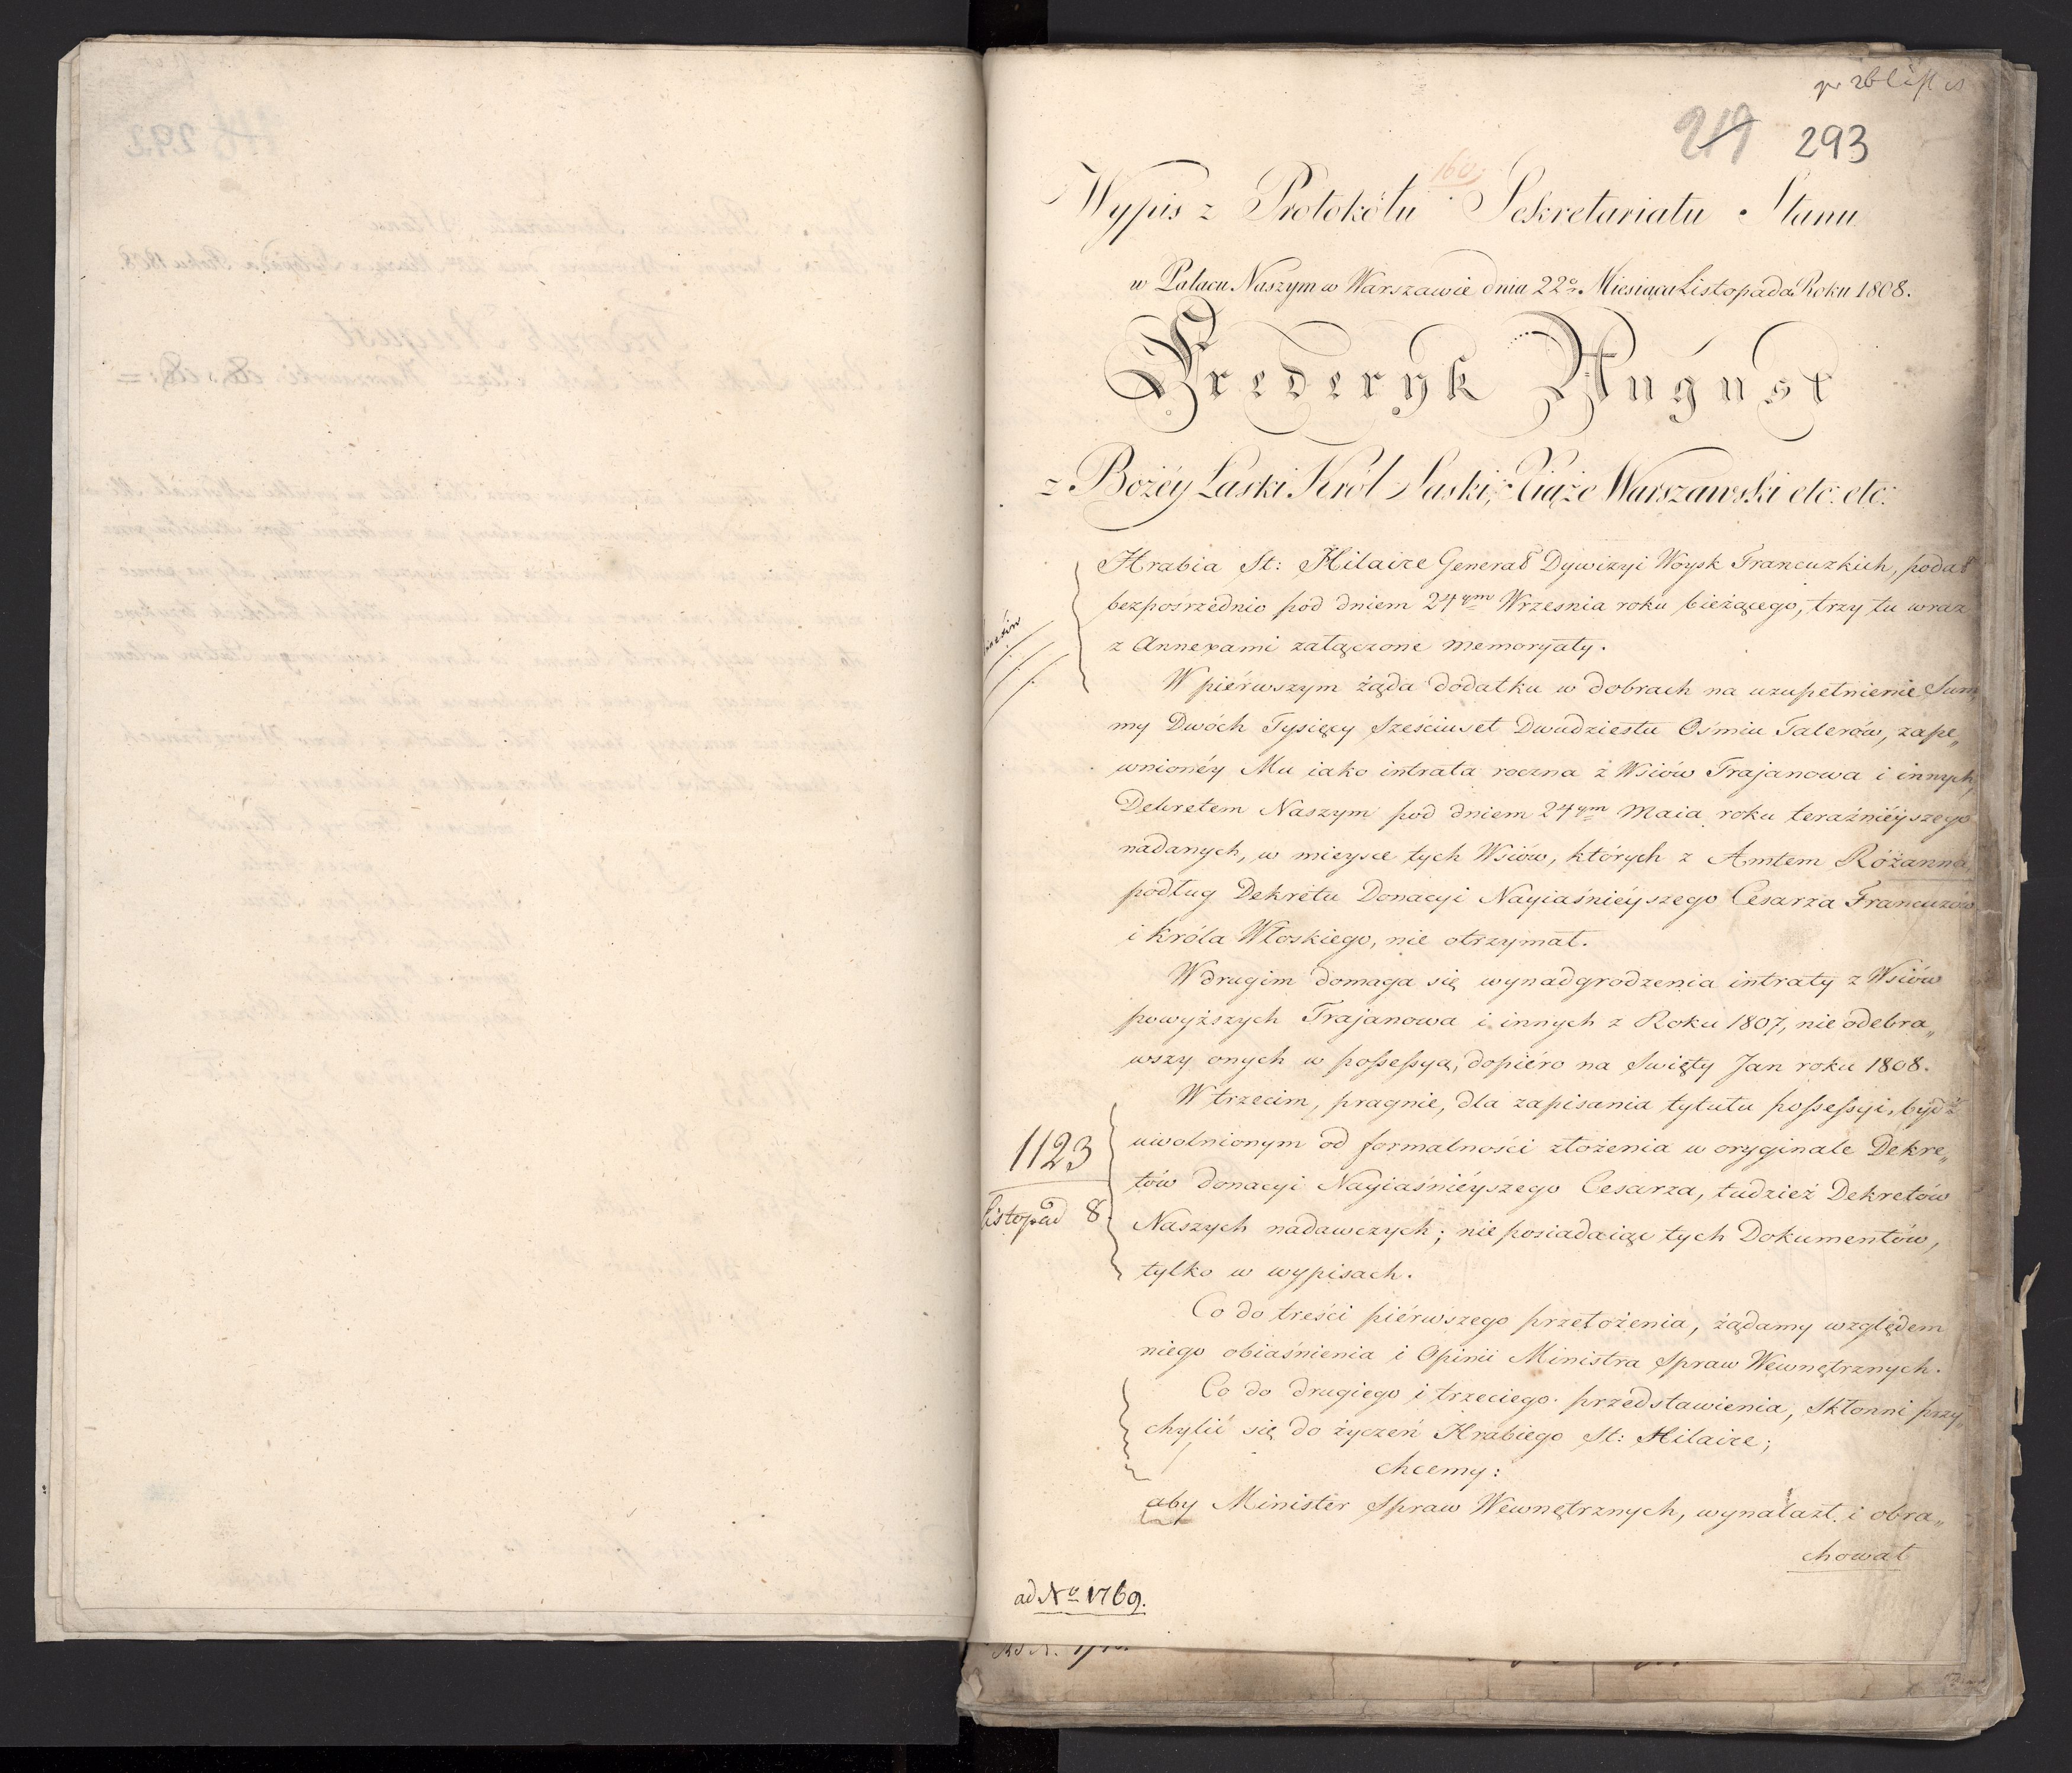 219 293
160
Wypis z Protokółu Sekretariatu Stanu
w Pałacu Naszym w Warszawie dnia 22go Miesiąca Listopada Roku 1808.
Frederyk August
z Bożéy Łaski Król Saski, Xiąże Warszawski etc: etc:
Hrabia St: Hilaire Generał Dywizyi Woysk Francuzkich, podał
bezpośrzednio pod dniem 24ym Wrzesnia roku bieżącego, trzy tu wraz
z Annexami załączone memoryały.
W piérwszym żąda dodatku w dobrach na uzupełnienie Sum
my Dwóch Tysięcy Sześciuset Dwudziestu Ośmiu Talerów, zape„
wnionéy Mu iako intrata roczna z Wsiów Trajanowa i innych,
Dekretem Naszym pod dniem 24ym Maia roku teraźniéyszego
nadanych, w mieysce tych Wsiów, których z Amtem Różanna,
podług Dekretu Donacyi Nayiaśniéyszego Cesarza Francuzów
i Króla Włoskiego, nie otrzymał.
W drugim domaga się wynadgrodzenia intraty z Wsiów
powyższych Trajanowa i innych z Roku 1807, nie odebra„
wszy onych w possessyą, dopiéro na Swięty Jan roku 1808.
W trzecim, pragnie, dla zapisania tytułu possessyi, bydź
uwolnionym od formalności złożenia w oryginale Dekre„
tów donacyi Nayiaśniéyszego Cesarza, tudzież Dekretów
Naszych nadawczych; nie posiadaiąc tych Dokumentów,
tylko w wypisach.
1123
Listopad 8.
Co do treści piérwszego przełożenia, żądamy względem
niego obiaśnienia i Opinii Ministra Spraw Wewnętrznych.
Co do drugiego i trzeciego przedstawienia, Skłonni przy„
chylić się do życzeń Hrabiego St: Hilaire;
chcemy:
aby Minister Spraw Wewnętrznych, wynalazł i obra„
chował
ad No 1769.